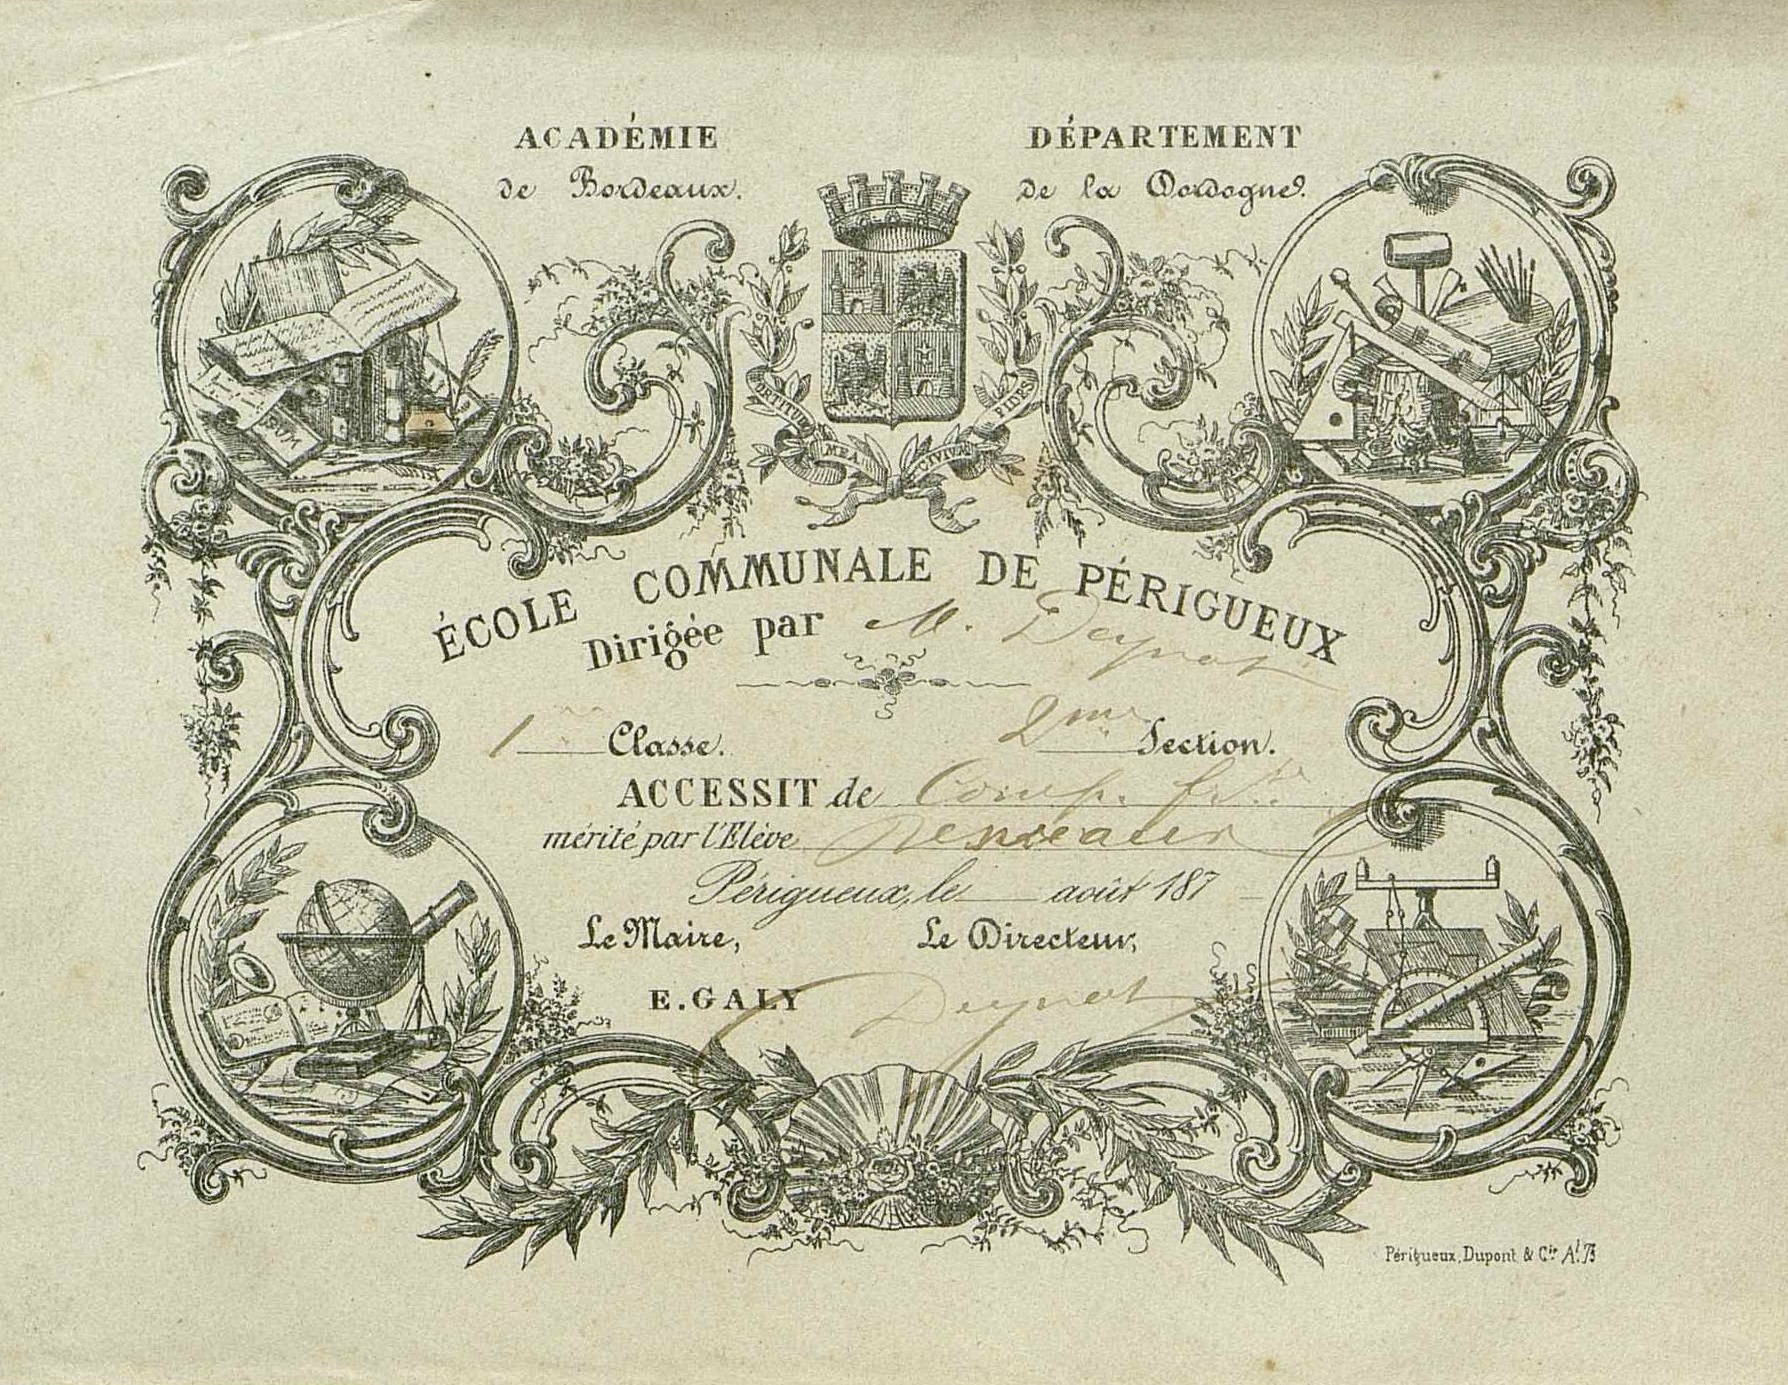 ACADÉMIE
de Bordeaux.
DÉPARTEMENT
de la Dordogne.
FORTITUDO MEA CIVIUM FIDES
ÉCOLE COMMUNALE DE PÉRIGUEUX
Dirigée par M. Deynat
1re Classe. 2me Section.
ACCESSIT de Comp. frse
mérité par l'Elève
Périgueux, le août 187
Le Maire, Le Directeur,
E. GALY Deynat
Périgueux, Dupont & Cie At. 73